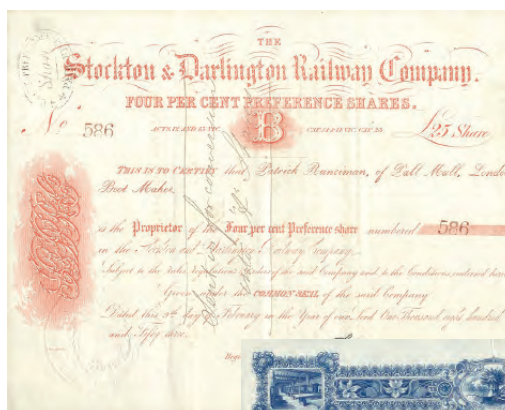 THE
Stockton & Darlington Railway Company.
FOUR PER CENT PREFERENCE SHARES.
No 586
B
£25 Share
THIS IS TO CERTIFY that Patrick Runciman, of Pall Mall, London
Boot Maker,
is the Proprietor of the Four per cent Preference share numbered 586
in the Stockton and Darlington Railway Company,
Subject to the Rules, Regulations & Orders of the said Company and to the Conditions endorsed hereon
Given under the COMMON SEAL of the said Company
Dated this 5th day of February in the Year of our Lord One Thousand eight hundred
and Fifty six.